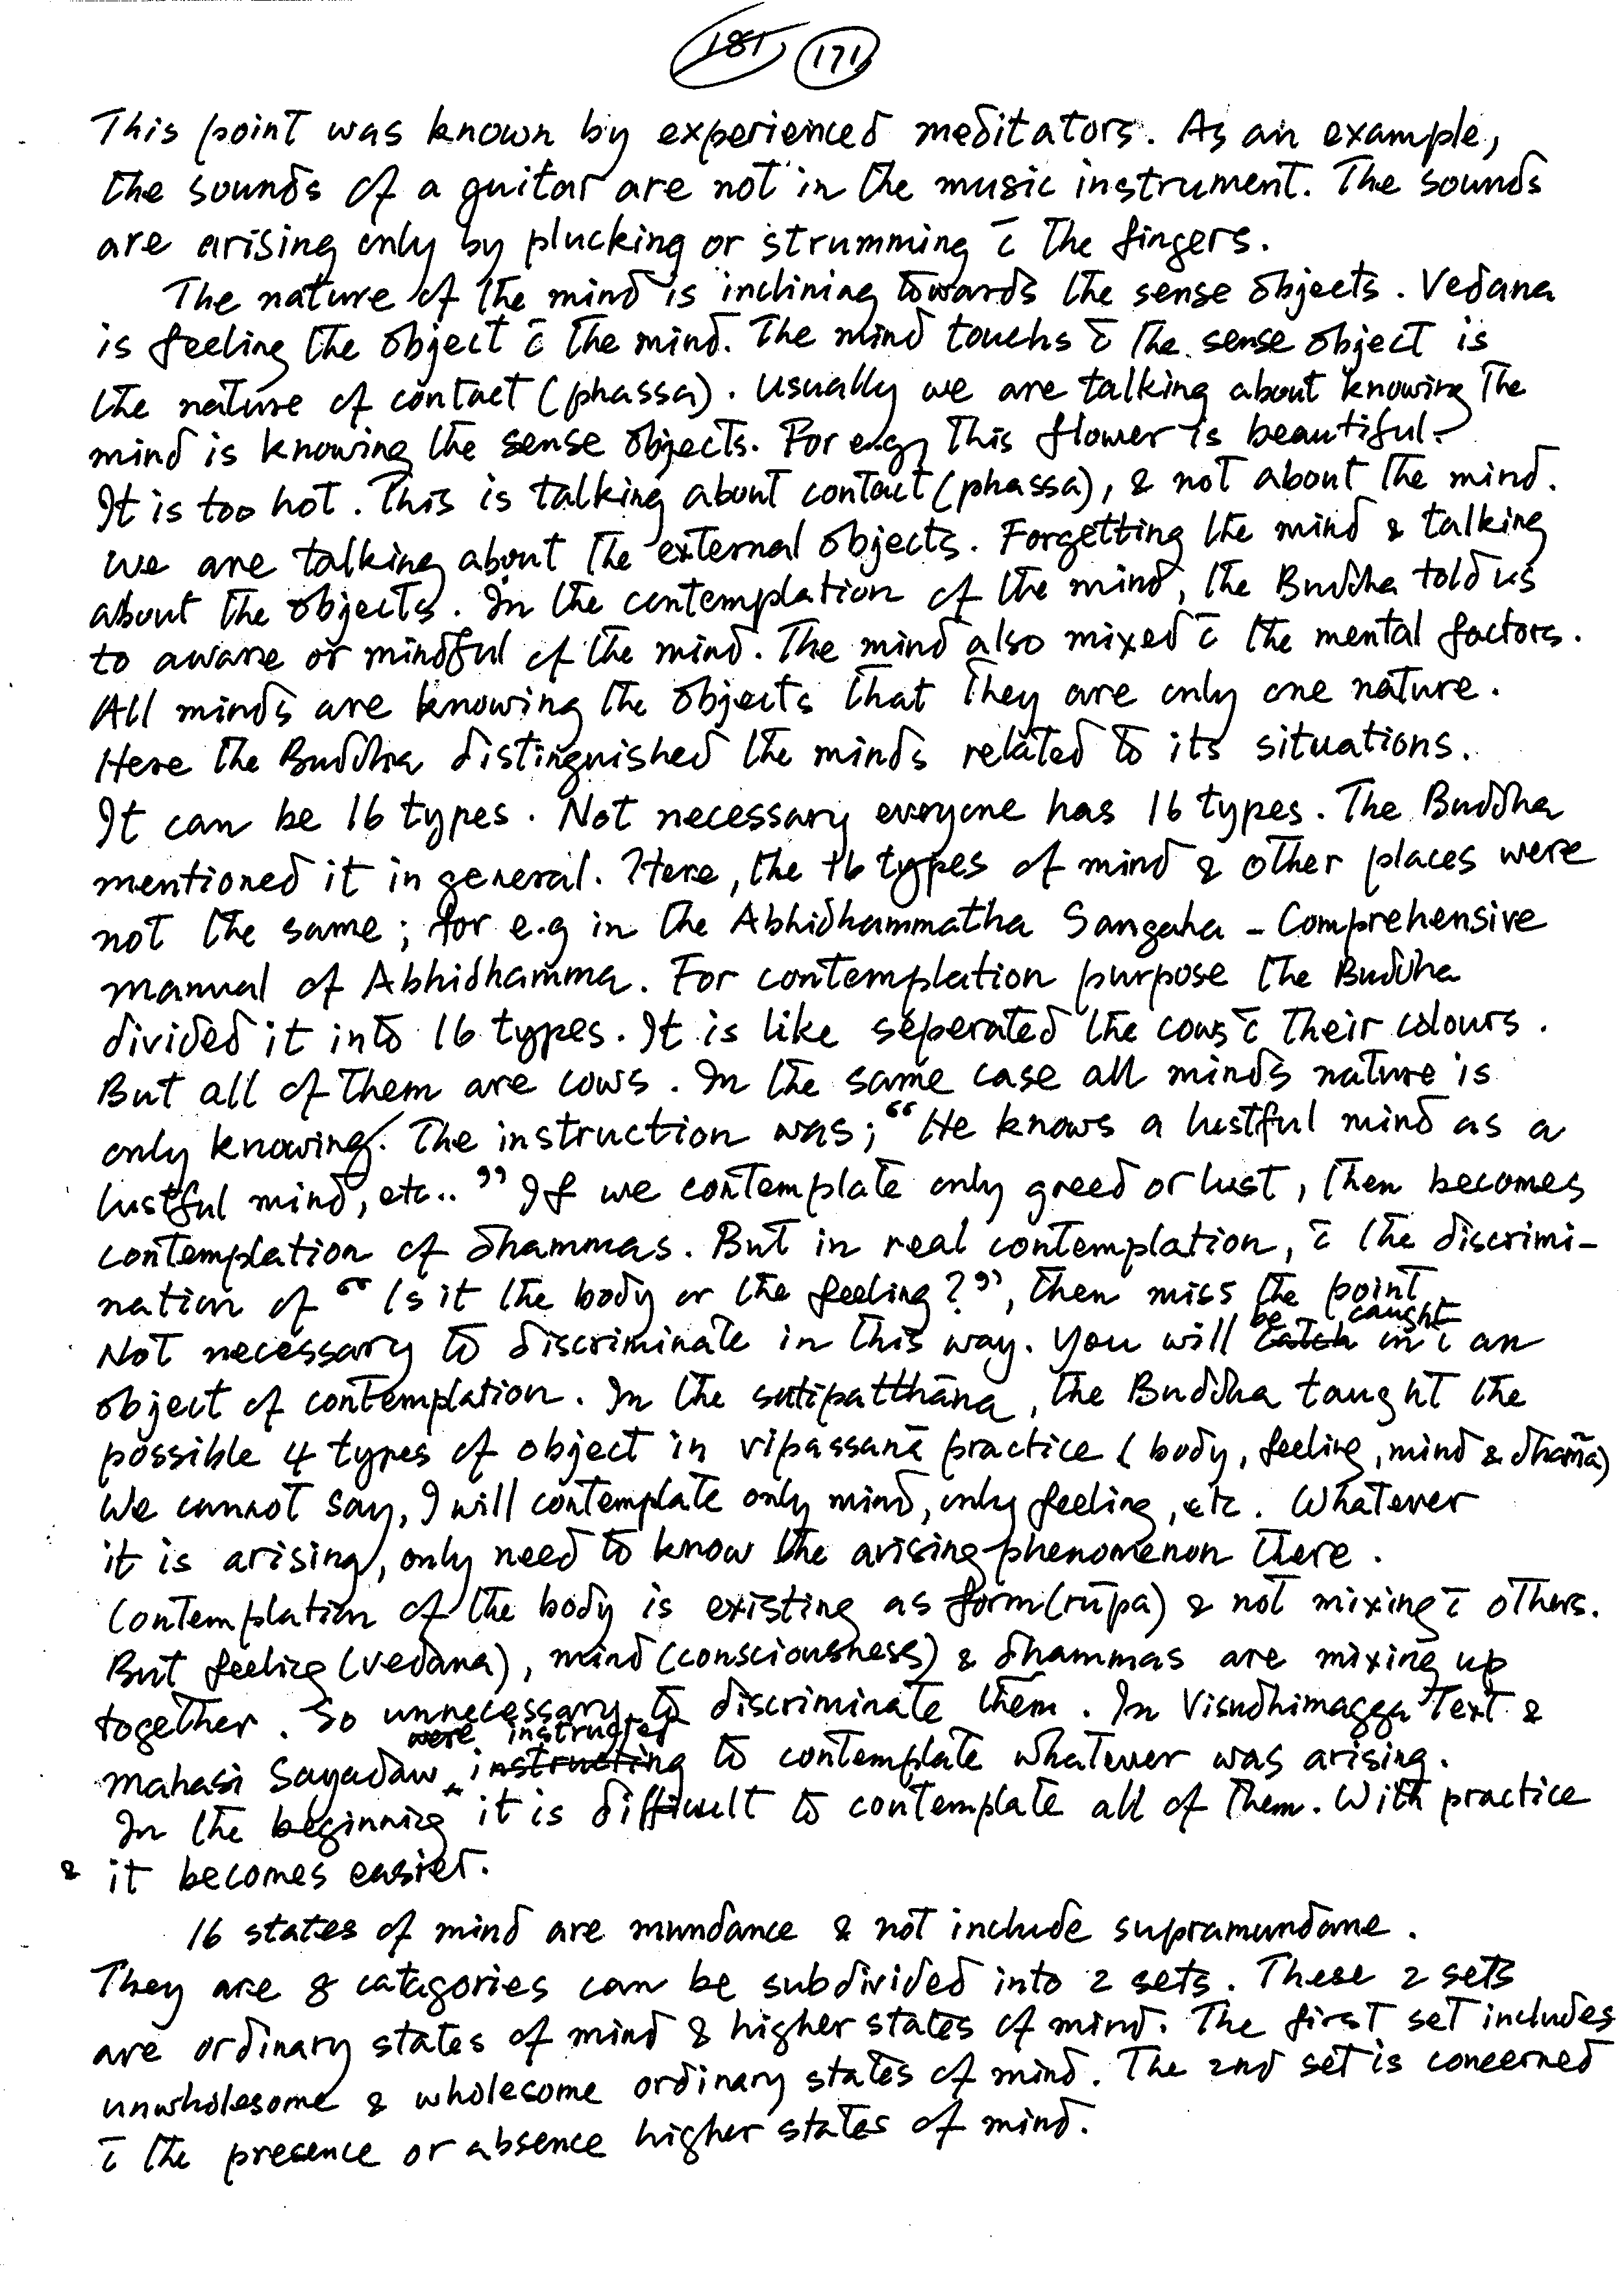 181 171
This point was known by experienced meditators. As an example,
the sounds of a guitar are not in the music instrument. The sounds
are arising only by plucking or strumming c̄ the fingers.
The nature of the mind is inclining towards the sense objects. Vedana
is feeling the object c̄ the mind. The mind touchs c̄ the sense object is
the nature of contact (phassa). Usually we are talking about knowing the
mind is knowing the sense objects. For e.g, this flower is beautiful.
It is too hot. This is talking about contact (phassa), & not about the mind.
We are talking about the external objects. Forgetting the mind & talking
about the objects. In the contemplation of the mind, the Buddha told us
to aware or mindful of the mind. The mind also mixed c̄ the mental factors.
All minds are knowing the objects that they are only one nature.
Here the Buddha distinguished the minds related to its situations.
It can be 16 types. Not necessary everyone has 16 types. The Buddha
mentioned it in general. Here, the 16 types of mind & other places were
not the same; for e.g in the Abhidhammatha Sangaha – Comprehensive
manual of Abhidhamma. For contemplation purpose the Buddha
divided it into 16 types. It is like seperated the cows c̄ their colours.
But all of them are cows. In the same case all minds nature is
only knowing. The instruction was; “He knows a lustful mind as a
lustful mind, etc..” If we contemplate only greed or lust, then becomes
contemplation of dhammas. But in real contemplation, c̄ the discrimi-
nation of “Is it the body or the feeling?”, then miss the point.
be caught
Not necessary to discriminate in this way. You will catch in c̄ an
object of contemplation. In the satipatthāna, the Buddha taught the
possible 4 types of object in vipassanā practice (body, feeling, mind & dham̄a)
We cannot say, I will contemplate only mind, only feeling, etc. Whatever
it is arising, only need to know the arising phenomenon there.
Contemplation of the body is existing as form (rūpa) & not mixing c̄ others.
But feeling (vedana), mind (consciousness) & dhammas are mixing up
together. So unnecessary to discriminate them. In Visudhimagga Text &
were instructed
Mahasi Sayadaw instructing to contemplate whatever was arising.
In the beginning it is difficult to contemplate all of them. With practice
& it becomes easier.
16 states of mind are mundance & not include supramundane.
They are 8 categories can be subdivided into 2 sets. These 2 sets
are ordinary states of mind & higher states of mind. The first set includes
unwholesome & wholesome ordinary states of mind. The 2nd set is concerned
c̄ the presence or absence higher states of mind.